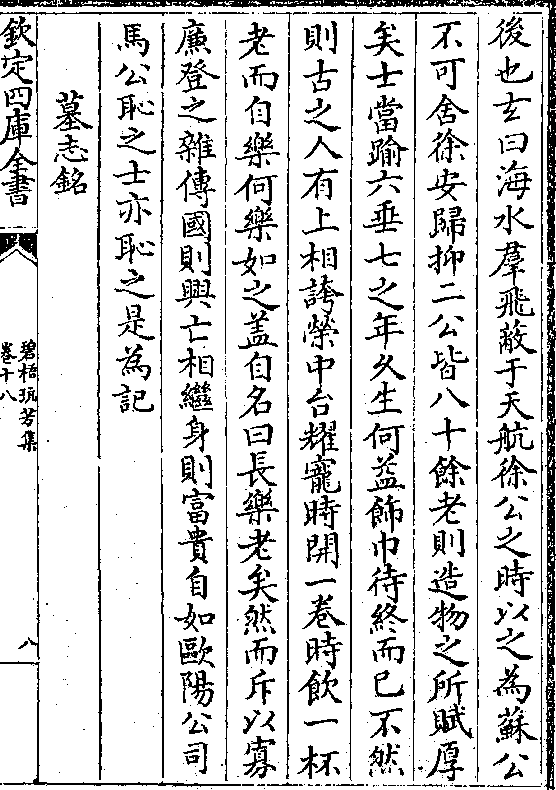 後也玄曰海水羣飛蔽于天航徐公之時以之為蘇公
不可舍徐安歸抑二公皆八十餘老則造物之所賦厚
矣士當踰六垂七之年久生何益飾巾待終而已不然
則古之人有上相誇榮中台耀寵時開一卷時飲一杯
老而自樂何樂如之盖自名曰長樂老矣然而斥以寡
廉登之雜傳國則興亡相繼身則富貴自如歐陽公司
馬公恥之士亦恥之是為記
墓志銘
欽定四庫全書
碧梧玩芳集
卷十八
八